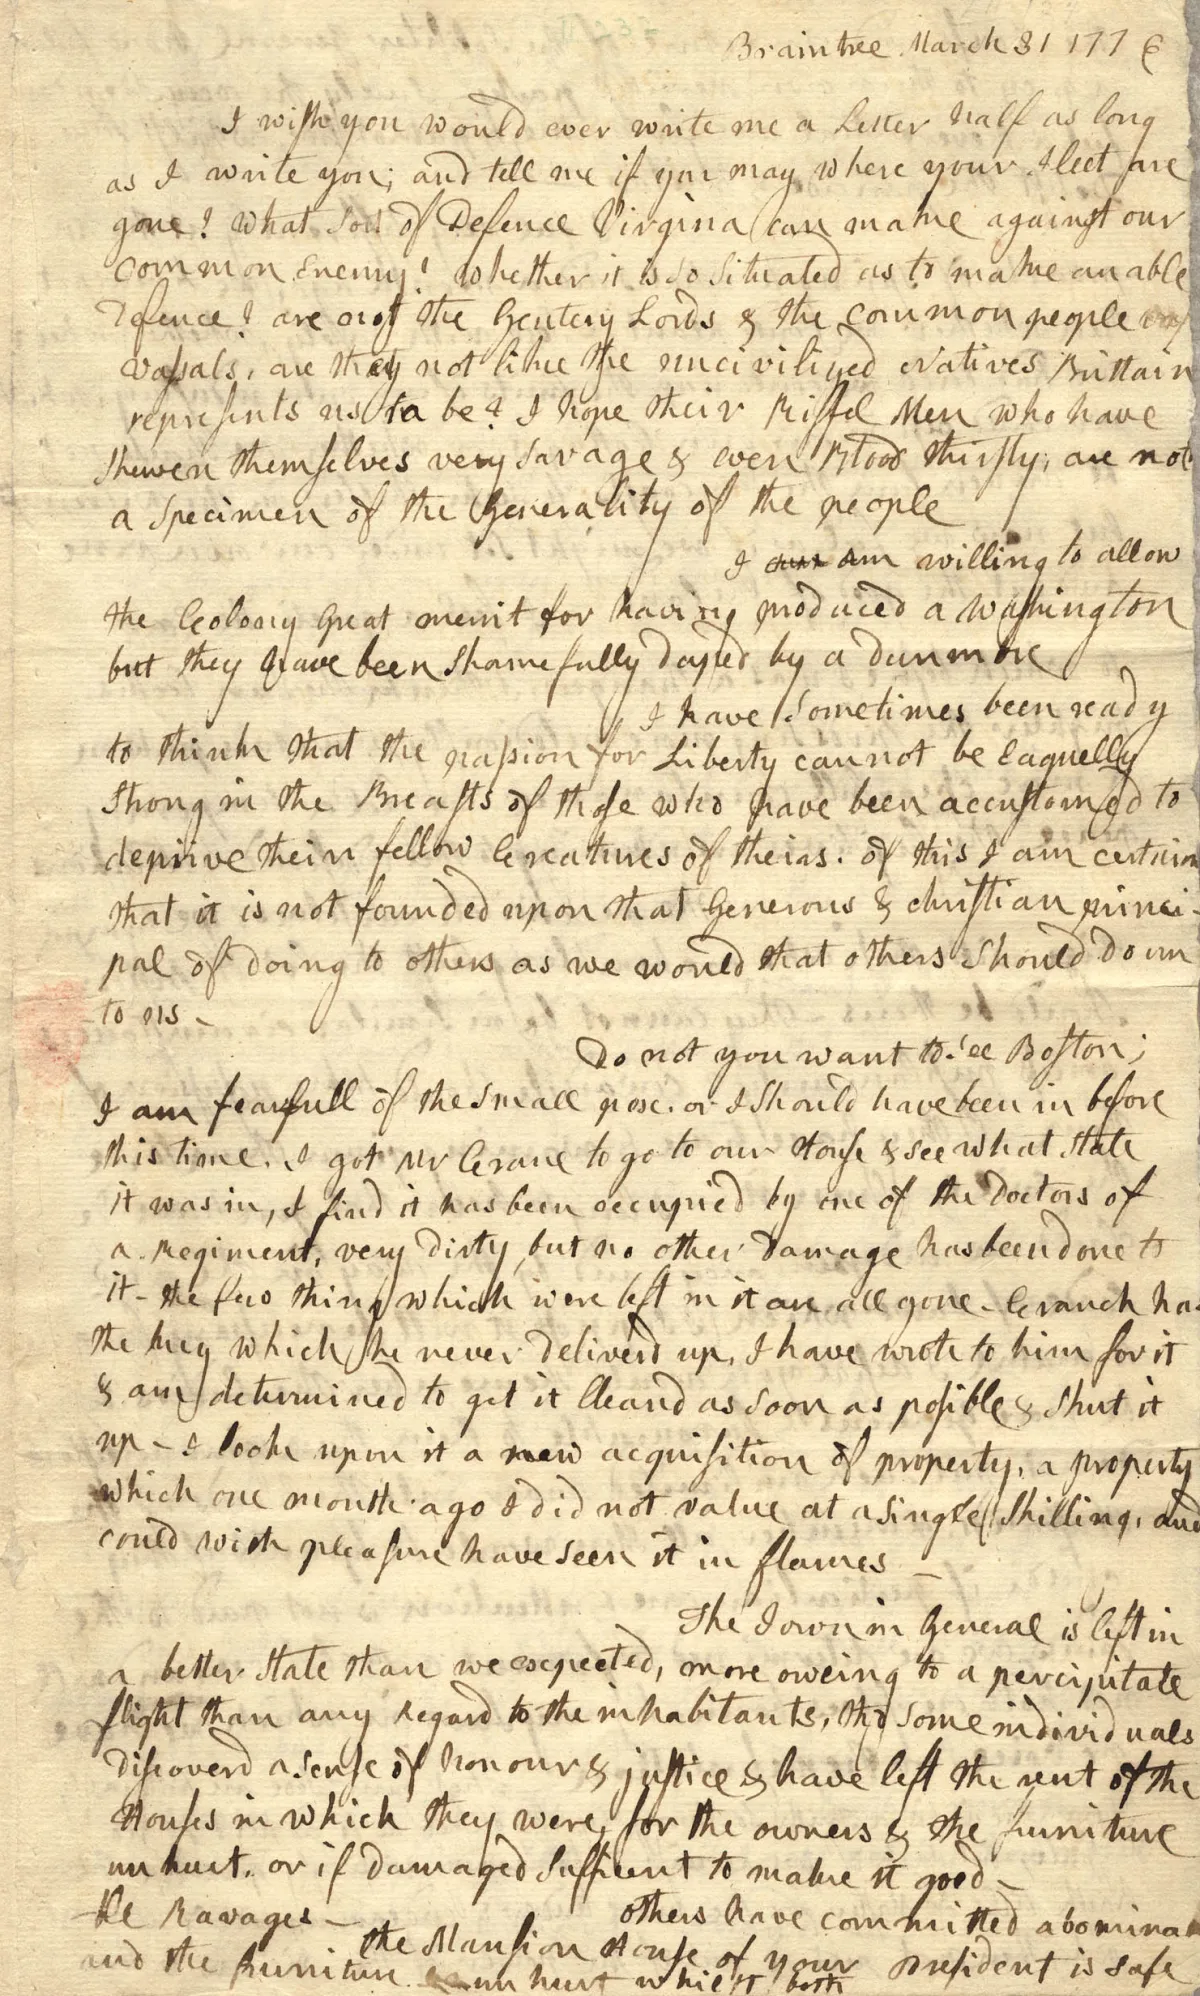 Braintree March 31 1776
I wish you would ever write me a Letter half as long
as I write you; and tell me if you may where your Fleet are
gone? What sort of Defence Virginia can make against our
common Enemy? Whether it is so situated as to make an able
Defence? are not the Gentery Lords & the common people
vassals, are they not like the uncivilized Natives Brittain
represents us to be? I hope their Riffel Men who have
shewen themselves very savage & even Blood thirsty; are not
a specimen of the Generality of the people
I am willing to allow
the Colony great merrit for having produced a Washington
but they have been shamefully duped by a Dunmore
I have sometimes been ready
to think that the passion for Liberty cannot be Eaquelly
Strong in the Breasts of those who have been accustomed to
deprive their fellow Creatures of theirs. Of this I am certain
that it is not founded upon that Generous & christian princi-
pal of doing to others as we would that others should do un
to us -
Do not you want to see Boston;
I am fearfull of the small pox. or I should have been in before
this time. I got Mr Crane to go to our House & see what state
it was in, I find it has been occupied by one of the Doctors of
a Regiment, very dirty, but no other damage has been done to
it - the few things which were left in it are all gone - Cranch has
the key which he never deliverd up, I have wrote to him for it
& am determined to get it cleand as soon as possible & shut it
up - I look upon it a new acquisition of property, a property
which one month ago I did not value at a single Shilling, and
could with pleasure have seen it in flames -
The Town in General is left in
a better state than we expected, more oweing to a percipitate
flight than any Regard to the inhabitants, tho some individuals
discoverd a sense of honour & justice & have left the rent of the
Houses in which they were, for the owners & the furniture
unhurt. or if damaged sufficent to make it good -
others have committed abomina
ble Ravages -
the Mansion House of your President is safe
and the furniture unhurt whilst both